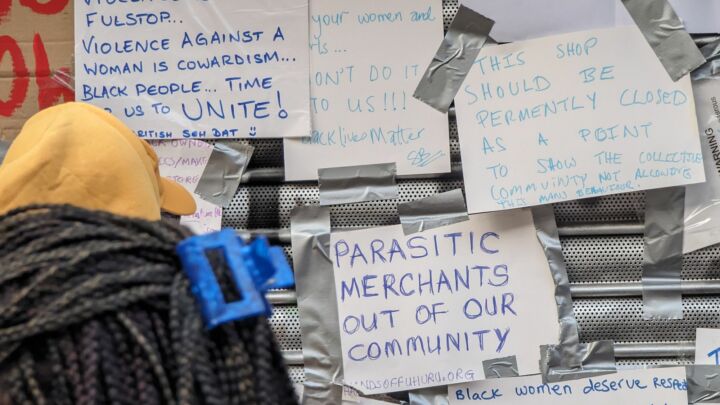 FULSTOP...
VIOLENCE AGAINST A
WOMAN IS COWARDISM...
BLACK PEOPLE... TIME
US TO UNITE!
BRITISH
your women and
ON'T DO IT
TO US !!!
Black lives Matter
THIS SHOP
SHOULD BE
PERMENTLY CLOSED
AS A POINT
TO SHOW THE COLLECTIVE
COMMUNITY NOT ALLOWING
THIS MANS BEHAVIOUR.
PARASITIC
MERCHANTS
OUT OF OUR
COMMUNITY
Black women deserve respe